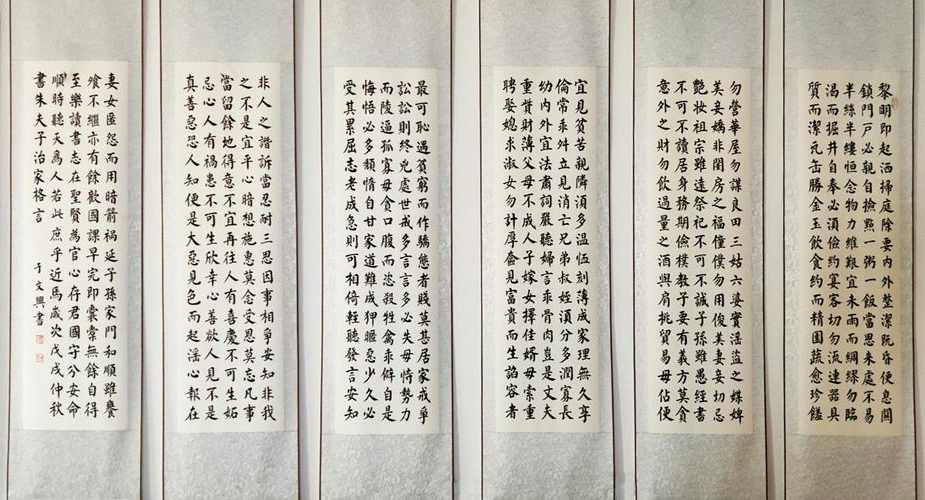 黎明即起洒掃庭除要内外整潔既昏便息關
鎖門戶必親自撿點一粥一飯當思来處不易
半絲半縷恒念物力維艱宜未雨而綢繆勿臨
渴而掘井自奉必須儉約宴客切勿流連器具
質而潔瓦缶勝金玉飲食約而精園蔬愈珍饈
勿營華屋勿謀良田三姑六婆實淫盗之媒婢
美妾嬌非閨房之福僮僕勿用俊美妻妾切忌
艷妝祖宗雖遠祭祀不可不誠子孫雖愚經書
不可不讀居身務期儉樸教子要有義方莫貪
意外之財勿飲過量之酒與肩挑貿易毋佔便
宜見貧苦親隣須多温恤刻薄成家理無久享
倫常乖舛立見消亡兄弟叔姪須分多潤寡長
幼内外宜法肅詞嚴聽婦言乖骨肉豈是丈夫
重貲財薄父母不成人子嫁女擇佳婿毋索重
聘娶媳求淑女勿計厚奩見富貴而生諂容者
最可恥遇貧窮而作驕態者賤莫甚居家戒爭
訟訟則終凶處世戒多言言多必失毋恃勢力
而陵逼孤寡毋貪口腹而恣殺牲禽乖僻自是
悔悟必多頹惰自甘家道難成狎暱惡少久必
受其累屈志老成急則可相倚輕聽發言安知
非人之譖訴當忍耐三思因事相爭安知非我
之不是宜平心暗想施惠莫念受恩莫忘凡事
當留餘地得意不宜再往人有喜慶不可生妬
忌心人有禍患不可生欣幸心善欲人見不是
真善惡恐人知便是大惡見色而起淫心報在
妻女匿怨而用暗箭禍延子孫家門和順雖饔
飧不繼亦有餘歡國課早完即囊橐無餘自得
至樂讀書志在聖賢為官心存君國守分安命
順時聽天為人若此庶乎近焉歲次戊戌仲秋
書朱夫子治家格言 于文興書